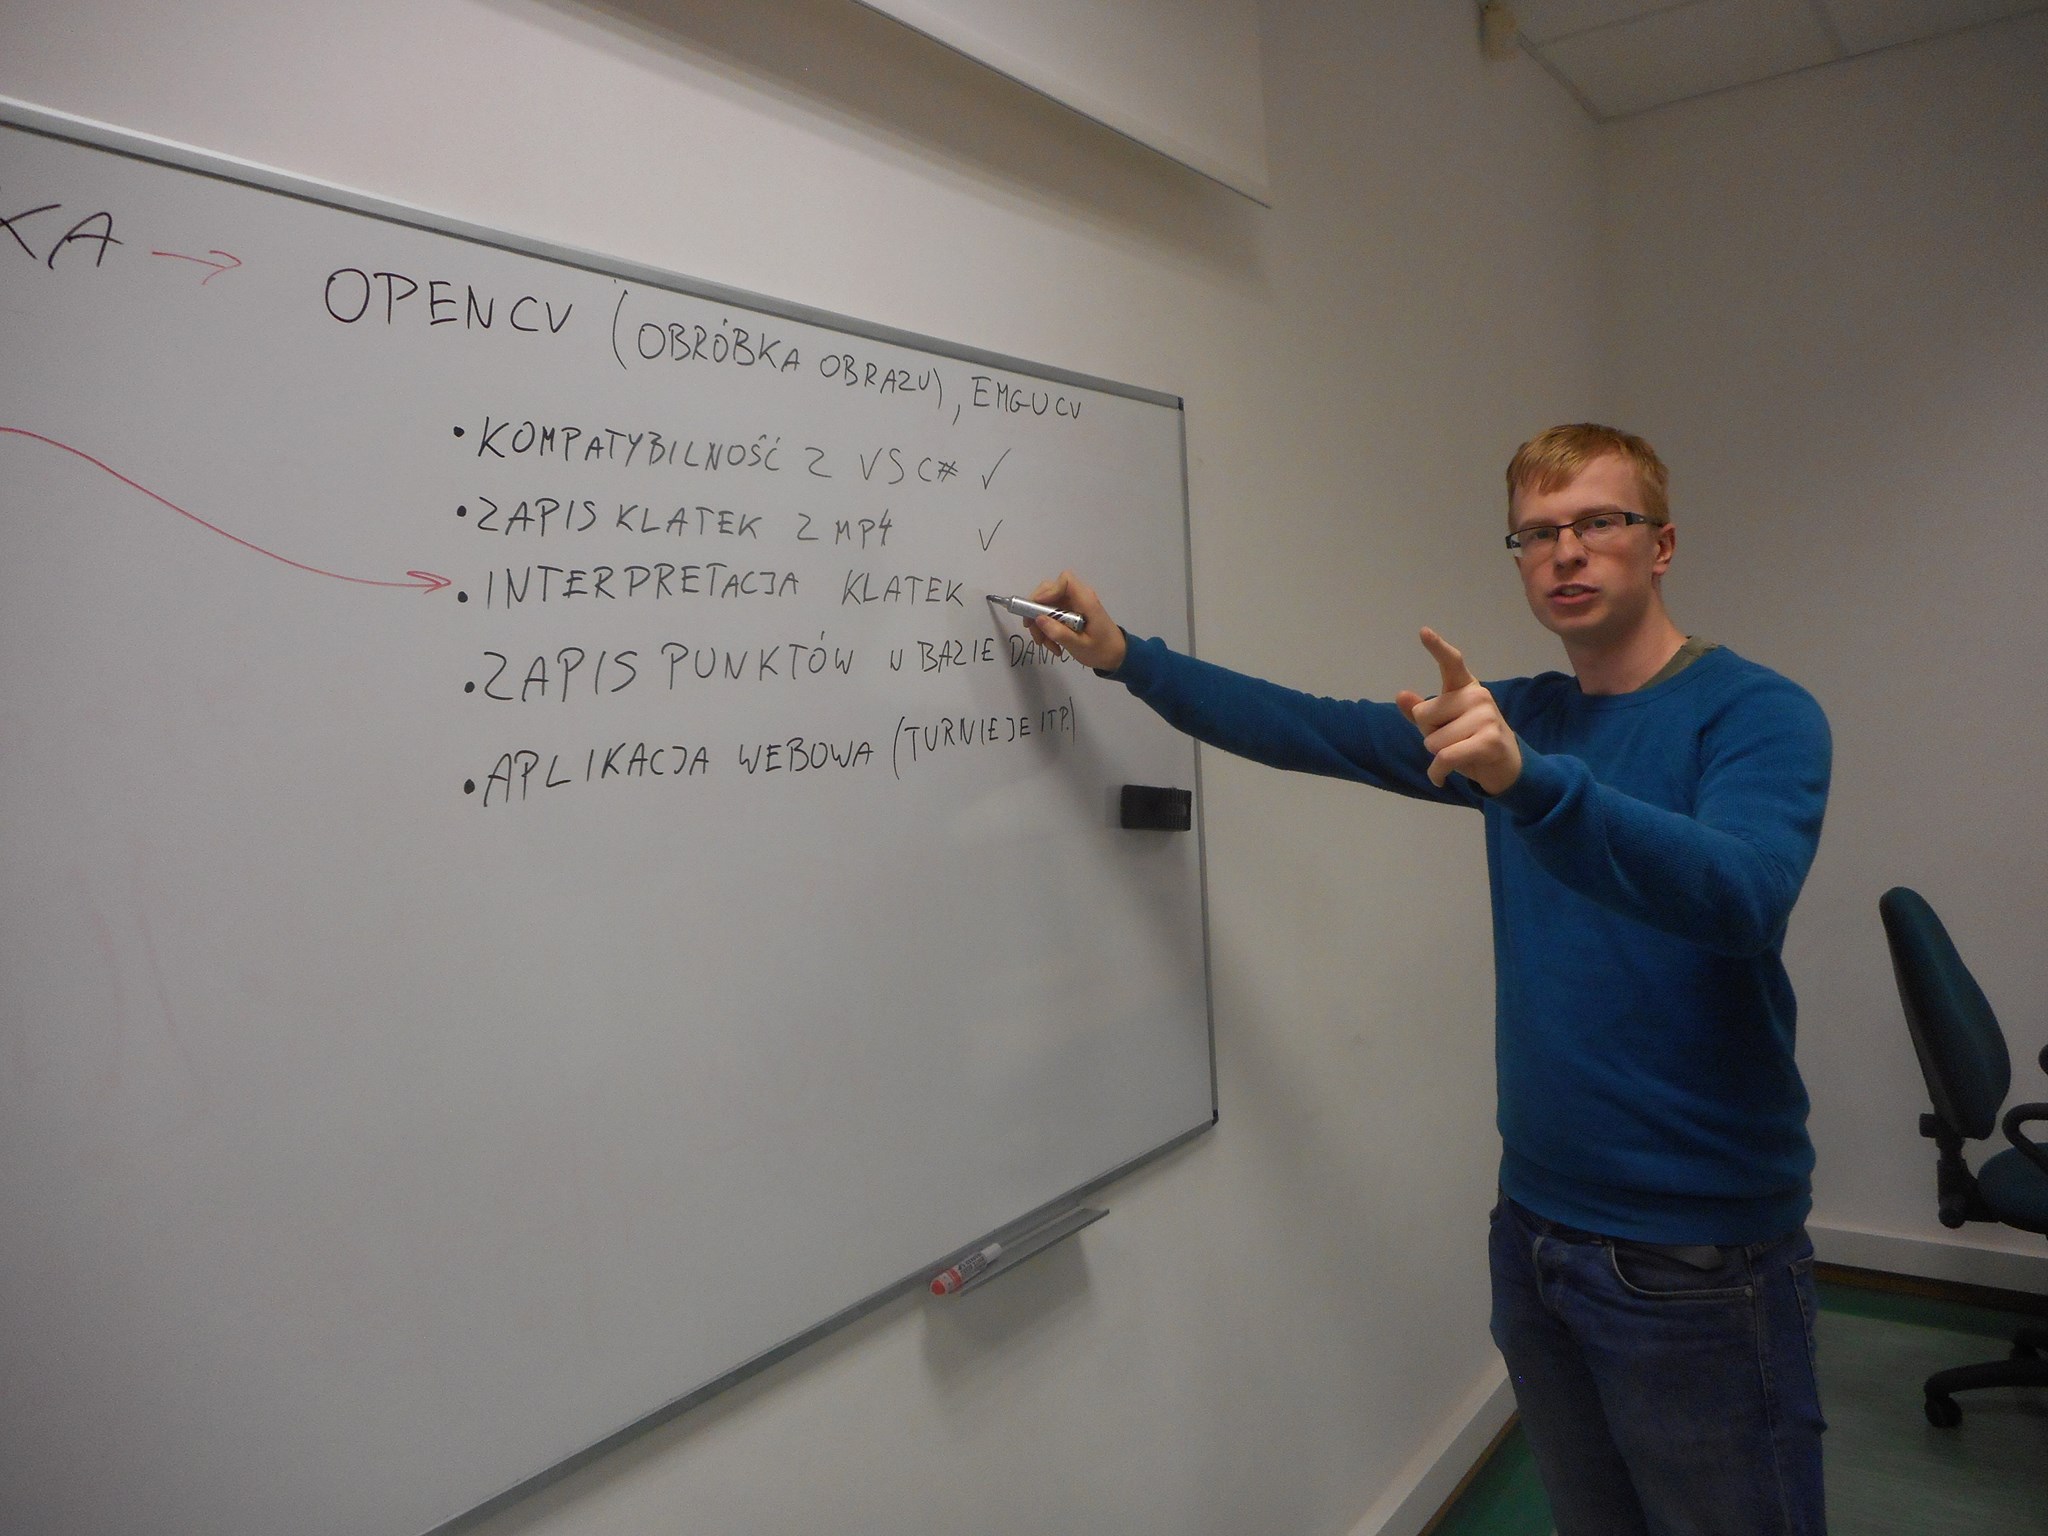 KA →
OPENCV (OBRÓBKA OBRAZU), EMGUCV
• KOMPATYBILNOŚĆ Z VS C# ✓
• ZAPIS KLATEK Z MP4 ✓
• INTERPRETACJA KLATEK
• ZAPIS PUNKTÓW W BAZIE
• APLIKACJA WEBOWA (TURNIEJE ITP.)